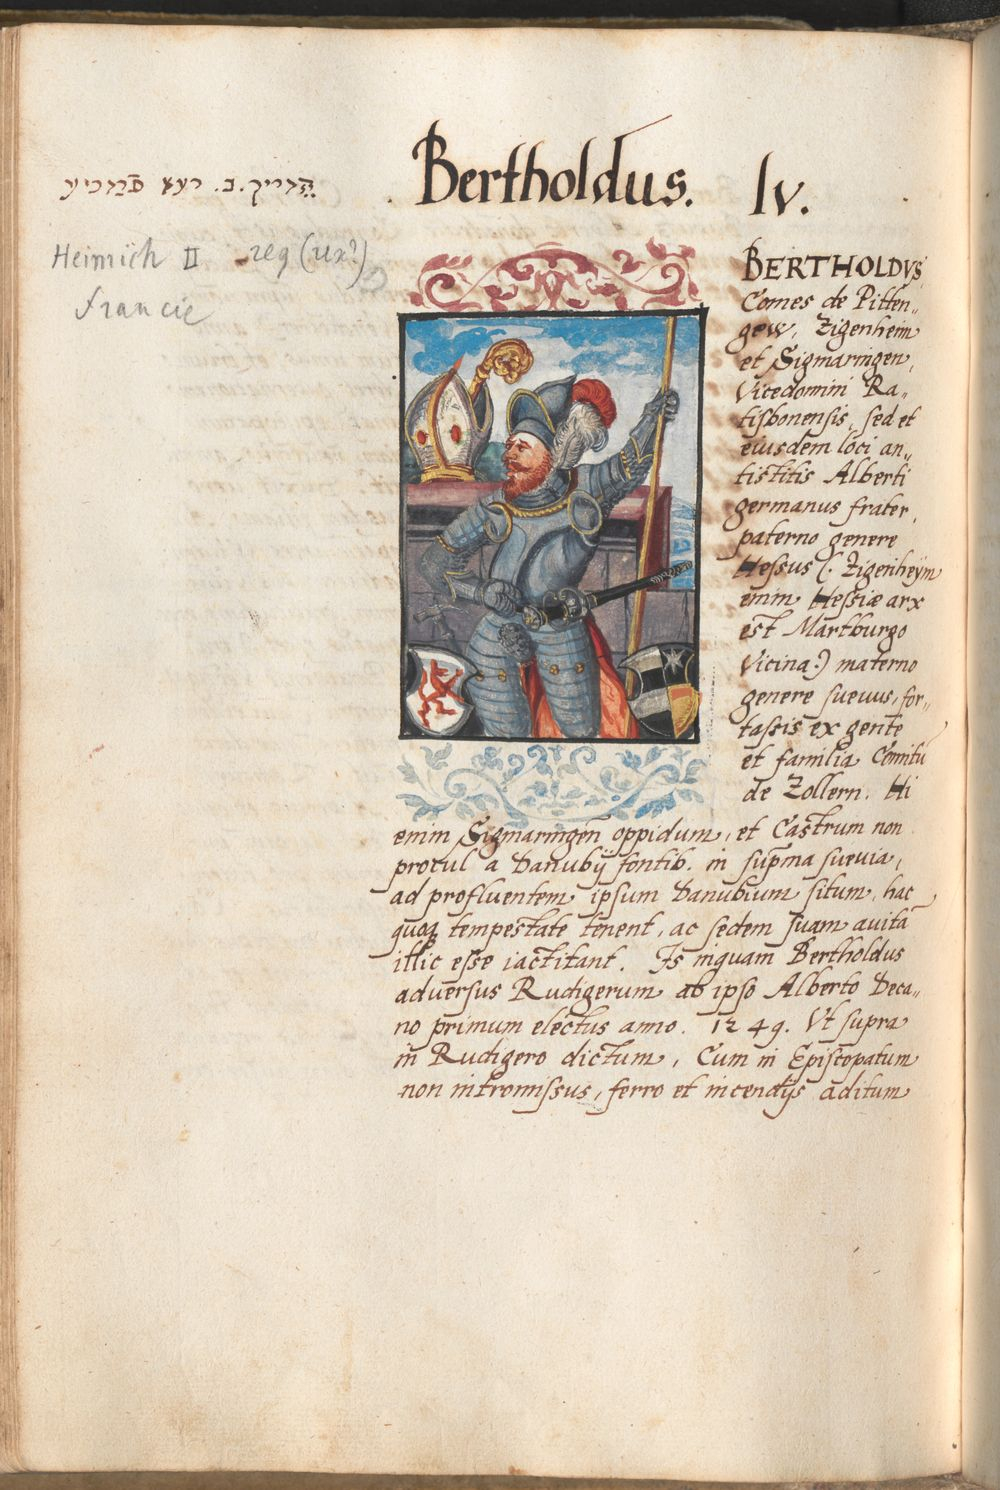 Bertholdus. IV.
הנריך .ב. רעג פֿרנכיע
Heinrich II reg (ux?)
francie
BERTHOLDVS,
Comes de Pitten„
gew, Zigenheim
et Sigmaringen,
Vicedomini Ra„
tisbonensis, sed et
eiusdem loci an„
tistitis Alberti
germanus frater,
paterno genere
Hessus (. Zigenheÿm
enim Hessiæ arx
est Martburgo
Vicina:) materno
genere suevus, for„
tassis ex gente
et familia Comitū
de Zollern. Hi
enim Sigmaringen oppidum, et Castrum non
procul a Danubÿ fontib. in sup̄ma suevia,
ad profluentem ipsum Danubium situm, hac
quoq tempestate tenent, ac sedem suam auitā
illic esse iactitant. Is inquam Bertholdus
adversus Rudigerum ab ipso Alberto Deca„
no primum electus anno. 1249. Vt supra
in Rudigero dictum, Cum in Episcopatum
non intromissus, ferro et incendÿs aditum